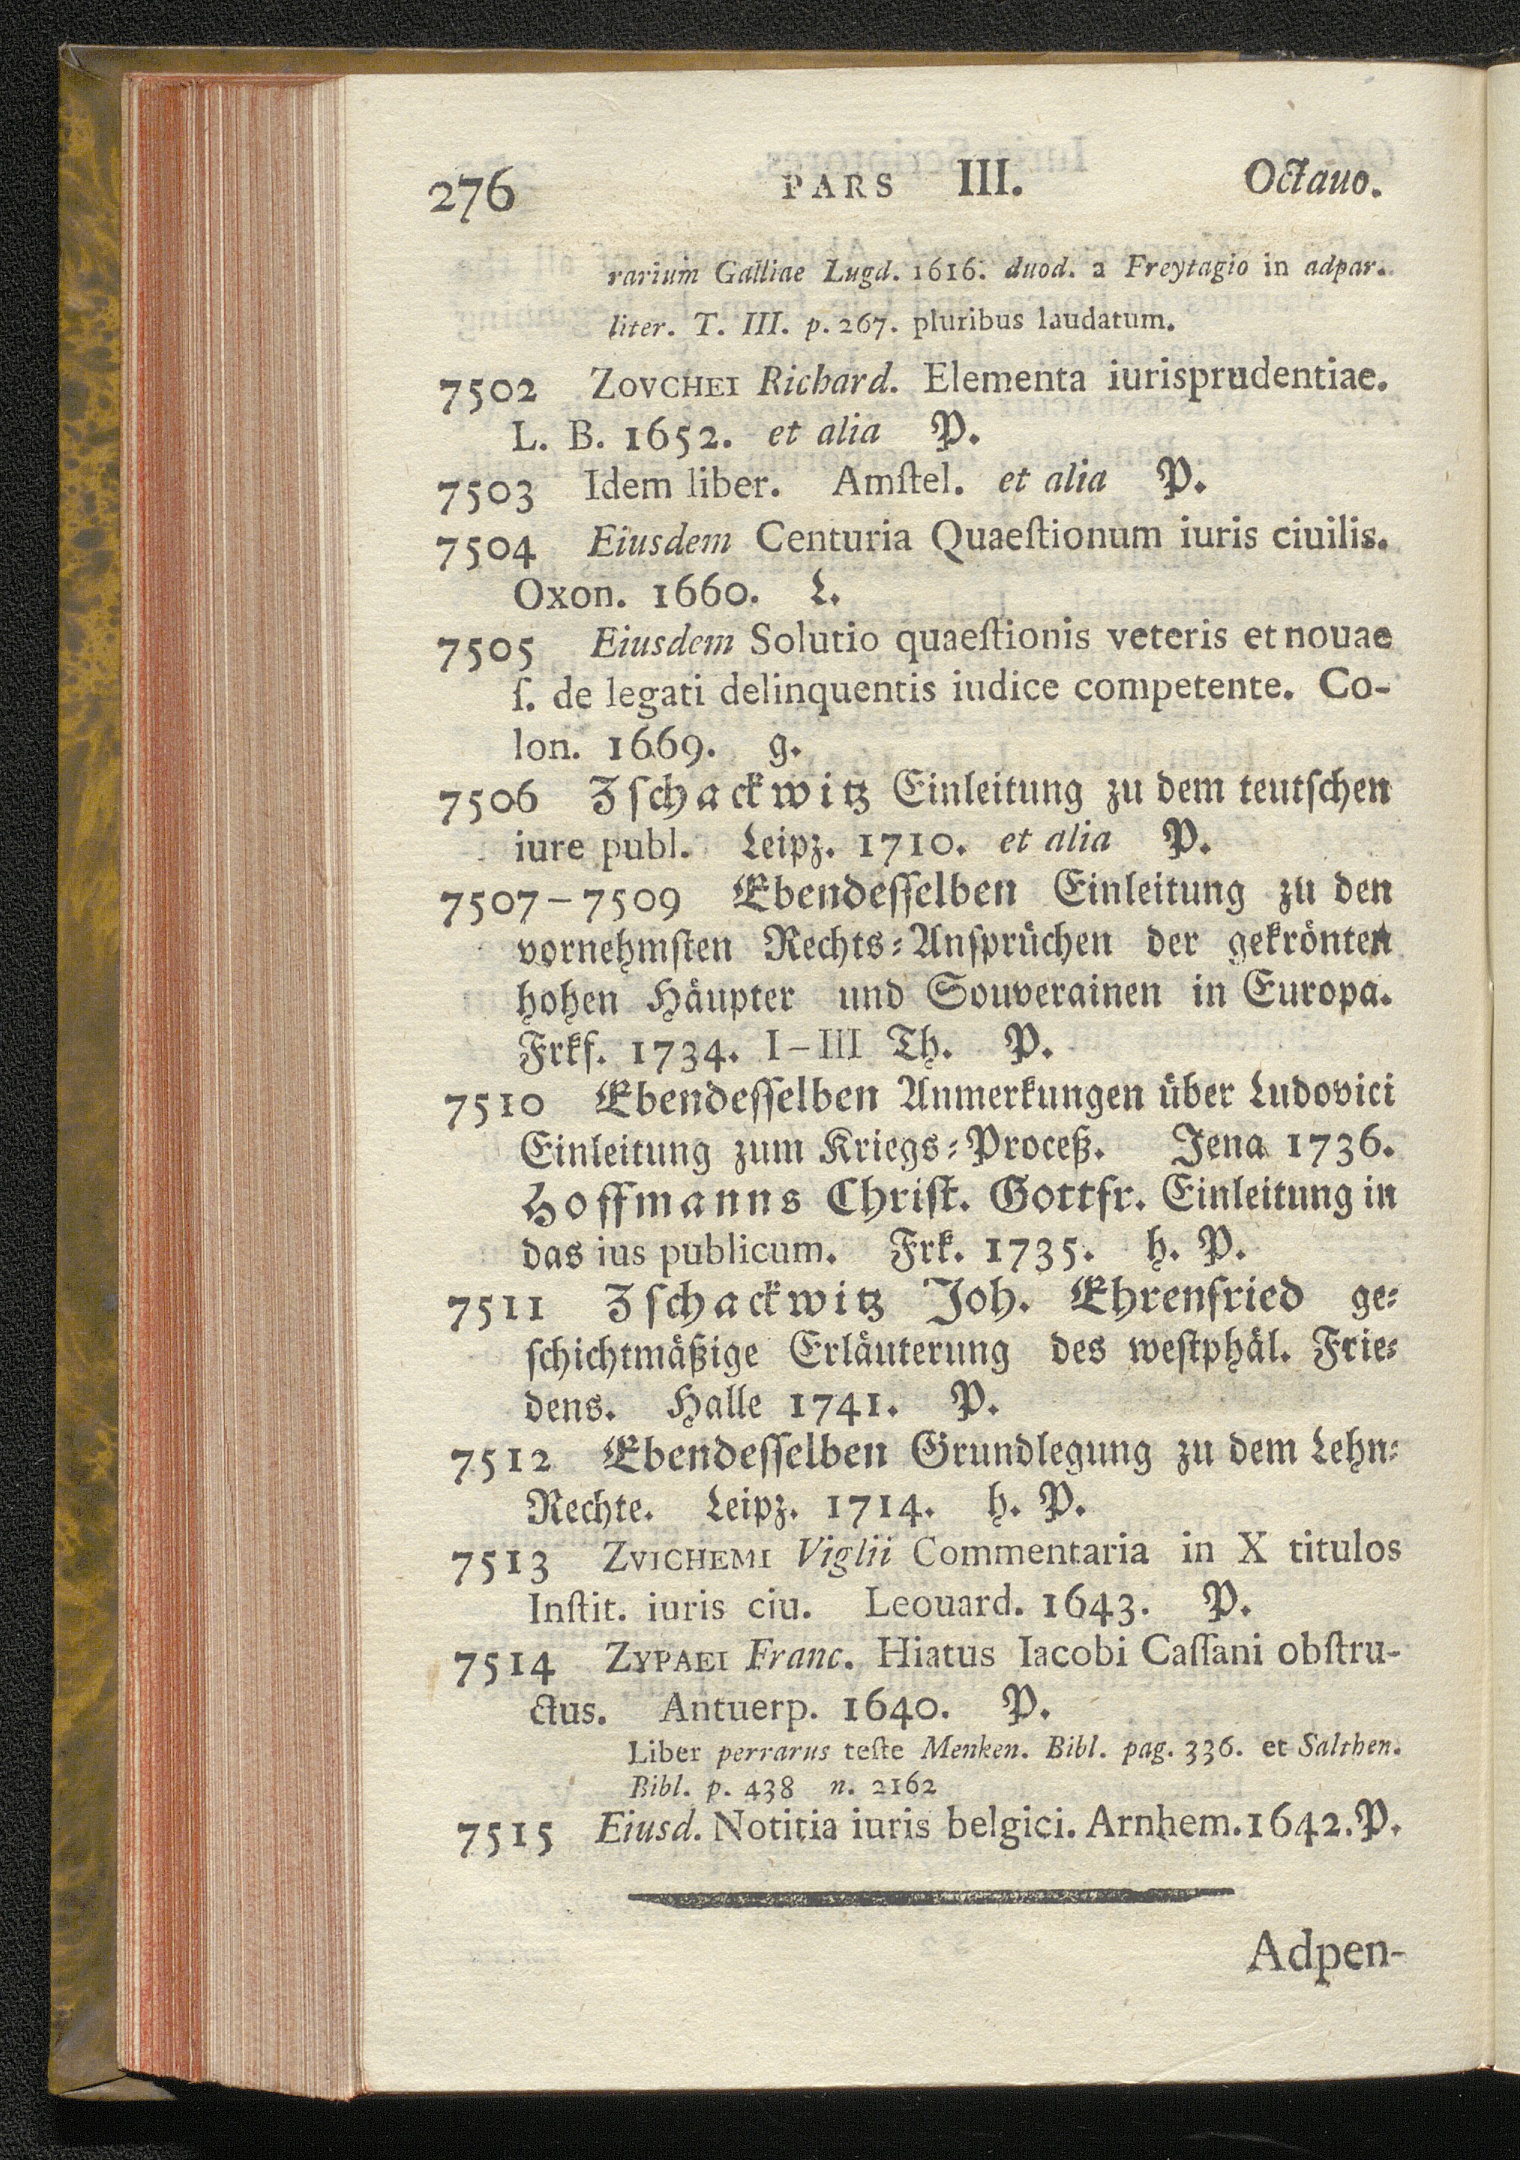 276 PARS III. Octauo.
rarium Galliae Lugd. 1616. duod. a Freytagio in adpar.
liter. T. III. p. 267. pluribus laudatum.
7502 ZOVCHEI Richard. Elementa iurisprudentiae.
L. B. 1652. et alia P.
7503 Idem liber. Amſtel. et alia P.
7504 Eiusdem Centuria Quaeſtionum iuris ciuilis.
Oxon. 1660. L.
7505 Eiusdem Solutio quaeſtionis veteris et nouae
ſ. de legati delinquentis iudice competente. Co-
lon. 1669. g.
7506 Zſchackwitz Einleitung zu dem teutſchen
iure publ. Leipz. 1710. et alia P.
7507-7509 Ebendeſſelben Einleitung zu den
vornehmſten Rechts-Anſprüchen der gekrönten
hohen Häupter und Souverainen in Europa.
Frkf. 1734. I-III Th. P.
7510 Ebendeſſelben Anmerkungen über Ludovici
Einleitung zum Kriegs-Proceß. Jena 1736.
Hoffmanns Chriſt. Gottfr. Einleitung in
das ius publicum. Frk. 1735. h. P.
7511 Zſchackwitz Joh. Ehrenfried ge-
ſchichtmäßige Erläuterung des weſtphäl. Frie-
dens. Halle 1741. P.
7512 Ebendeſſelben Grundlegung zu dem Lehn-
Rechte. Leipz. 1714. h. P.
7513 ZVICHEMI Viglii Commentaria in X titulos
Inſtit. iuris ciu. Leouard. 1643. P.
7514 ZYPAEI Franc. Hiatus Iacobi Caſſani obſtru-
ctus. Antuerp. 1640. P.
Liber perrarus teſte Menken. Bibl. pag. 336. et Salthen.
Bibl. p. 438 n. 2162
7515 Eiusd. Notitia iuris belgici. Arnhem. 1642. P.
Adpen-